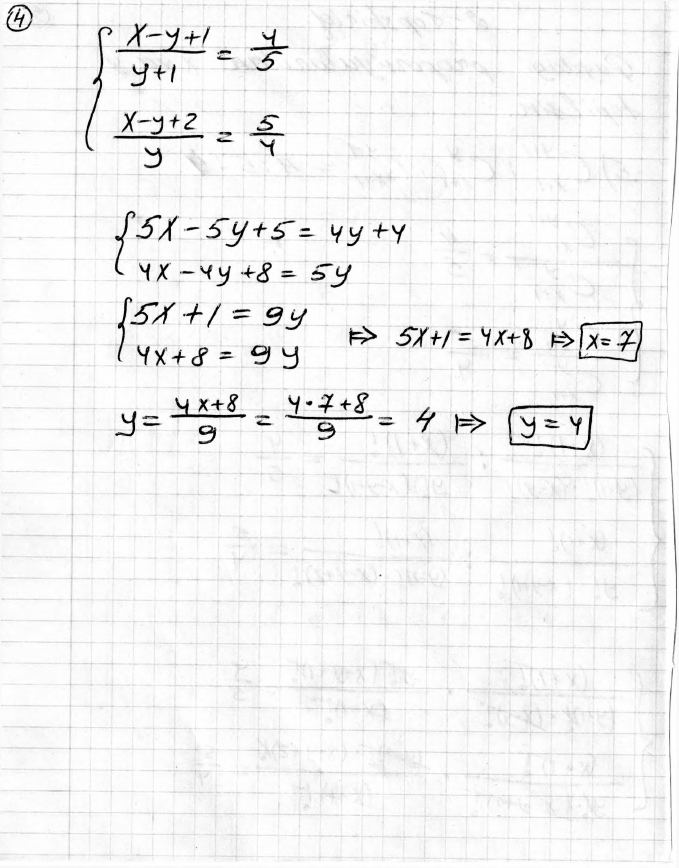 ④
{ (x-y+1)/(y+1) = 4/5
(x-y+2)/y = 5/4
{ 5x - 5y + 5 = 4y + 4
4x - 4y + 8 = 5y
{ 5x + 1 = 9y
4x + 8 = 9y ⇒ 5x+1 = 4x+8 ⇒ x = 7
y = (4x+8)/9 = (4·7+8)/9 = 4 ⇒ y = 4